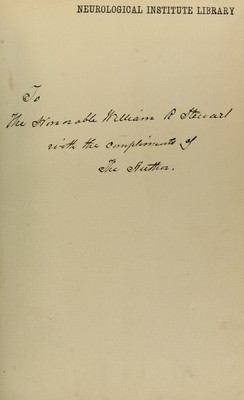 NEUROLOGICAL INSTITUTE LIBRARY
To
The Honorable William R Stewart
with the compliments of
The Author.